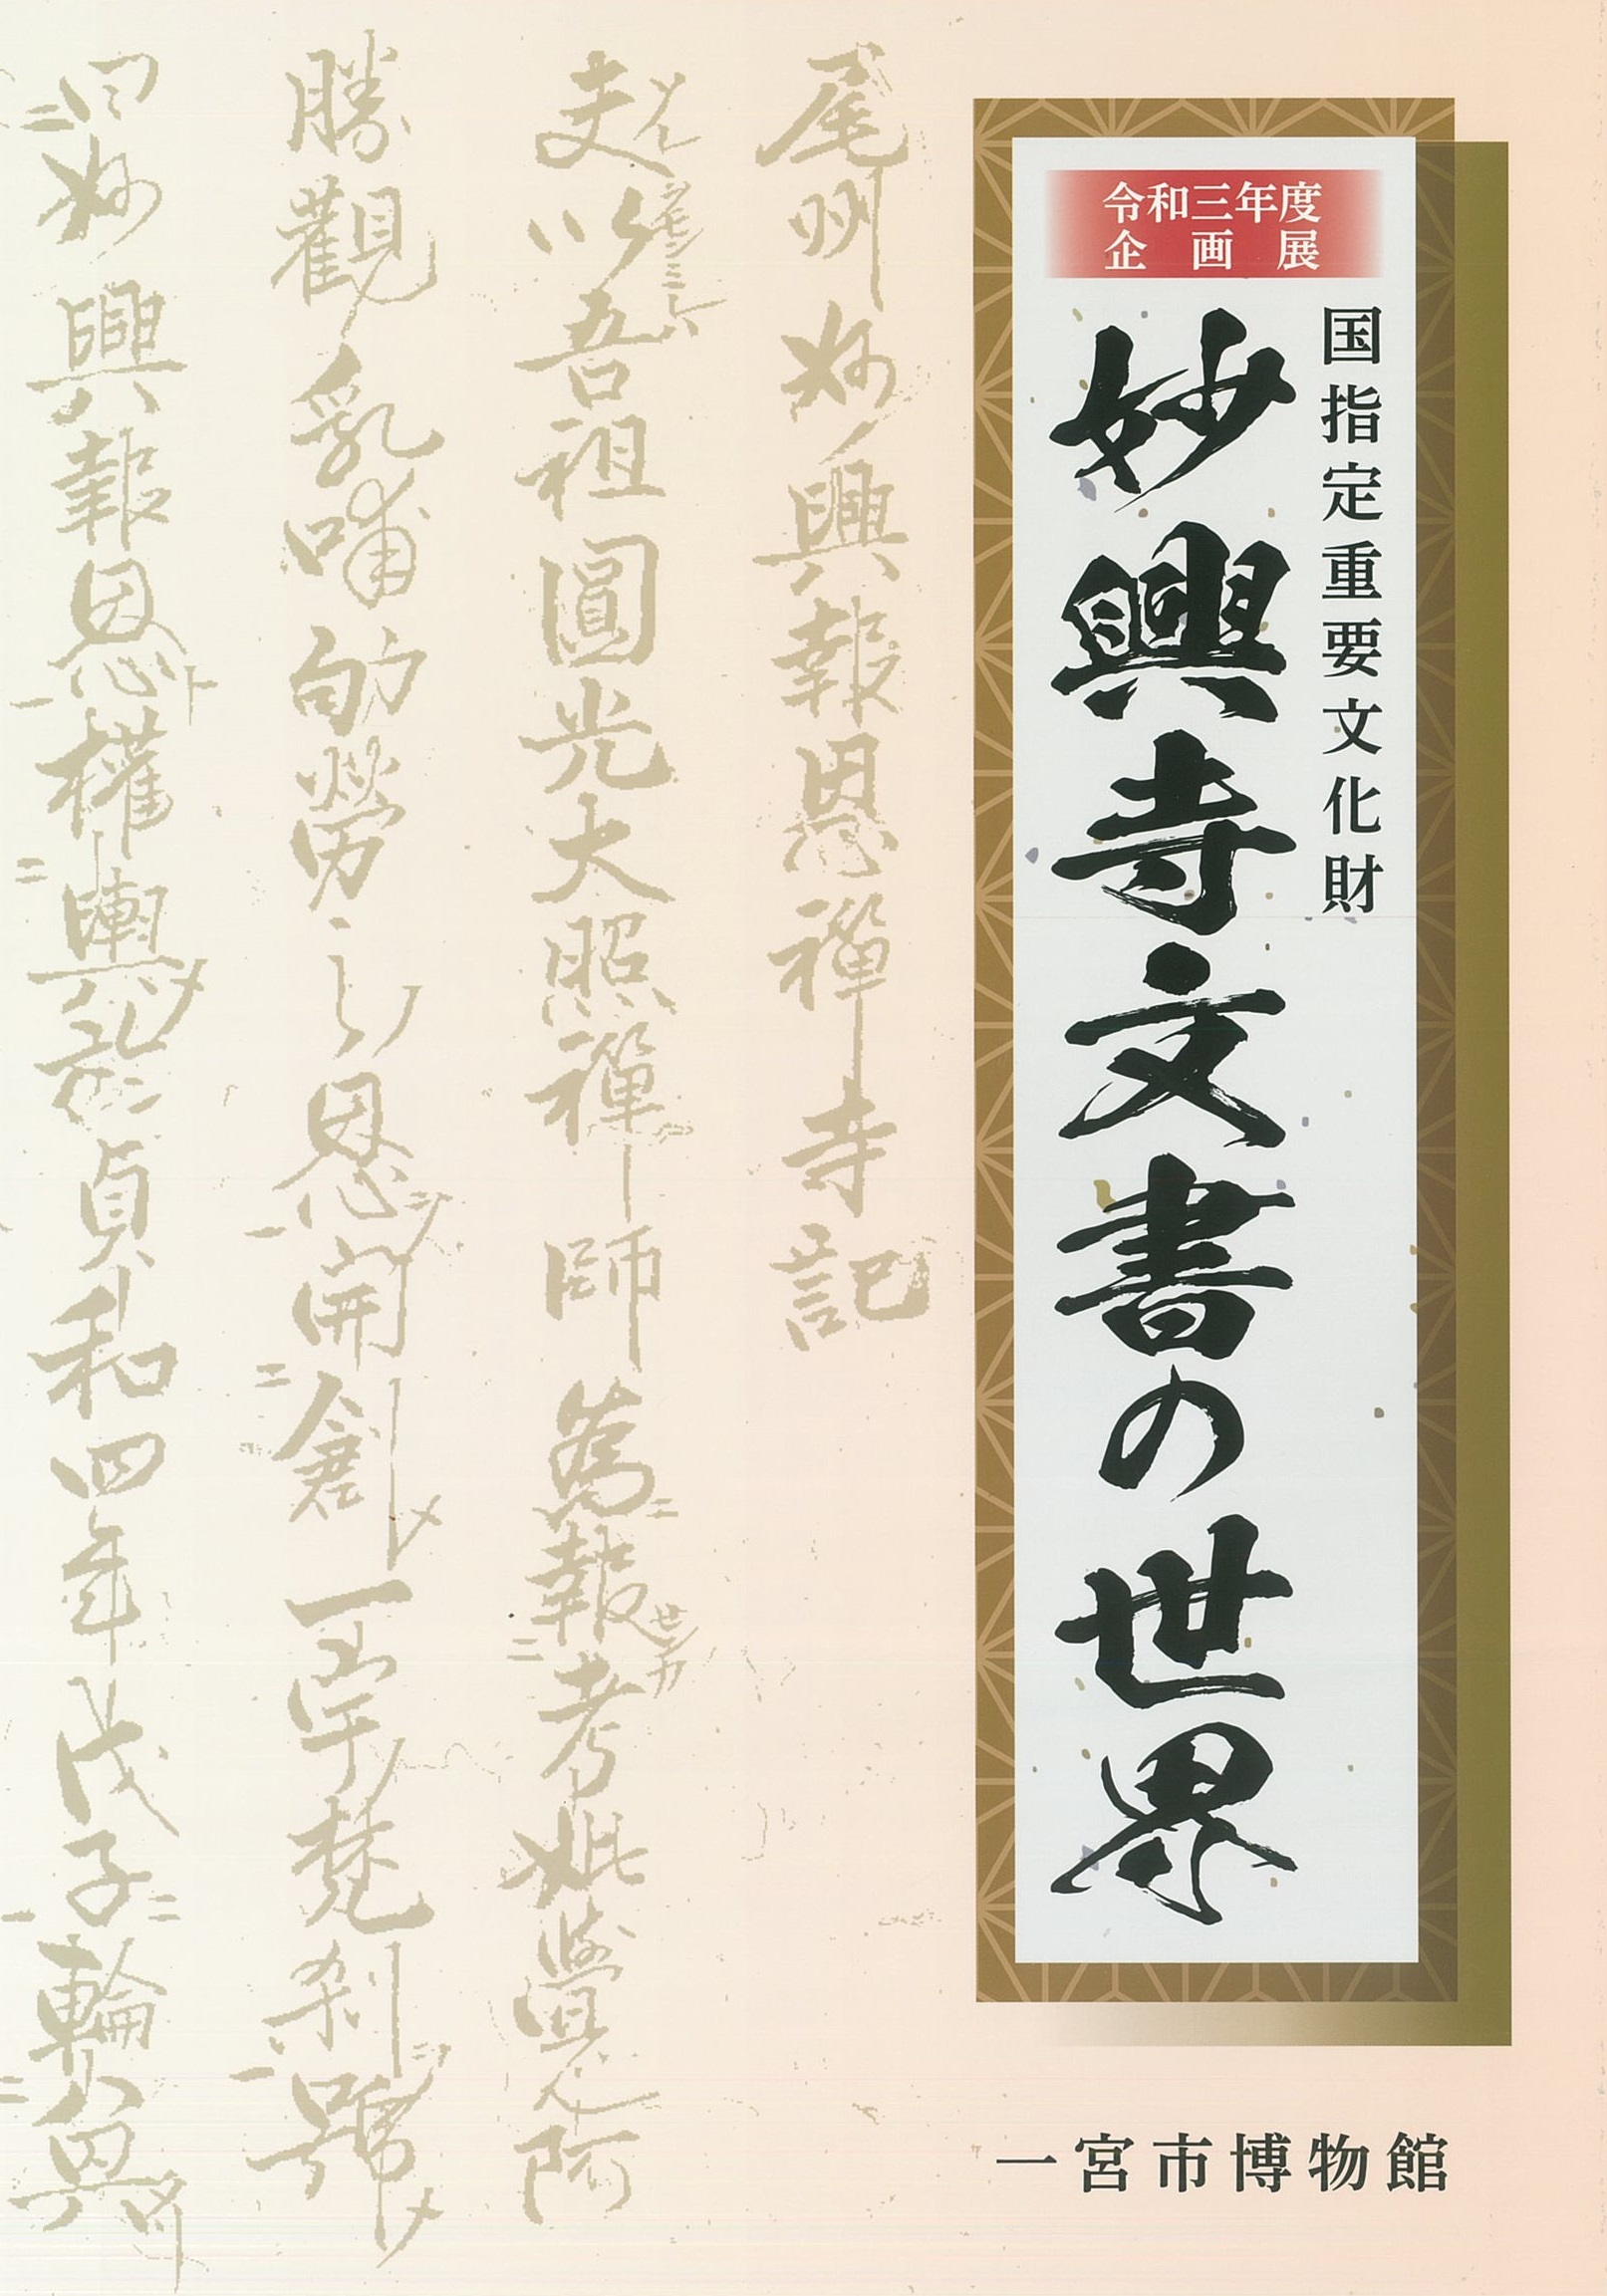 令和三年度
企画展
国指定重要文化財
妙興寺文書の世界
一宮市博物館
尾州妙興報恩禪寺記
夫以吾祖圓光大照禪師爲報考妣覺阿
勝觀乳哺劬勞之恩開創一宇梵刹號
曰妙興報恩權輿於貞和四年戊子輪奐